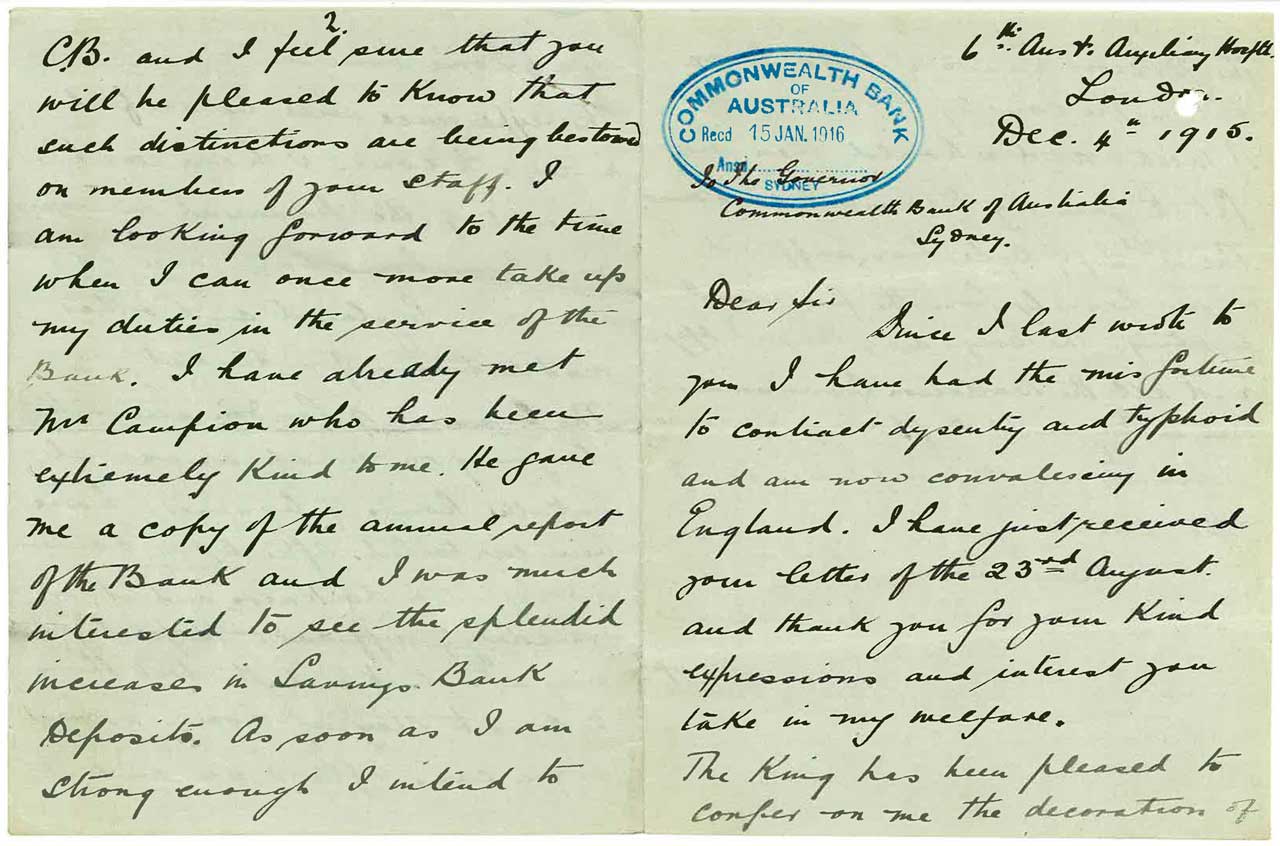 6th. Aust. Auxiliary Hosptl.
London.
Dec. 4th 1915.
COMMONWEALTH BANK
OF
AUSTRALIA
Recd 15 JAN. 1916
Ansd
SYDNEY
To The Governor
Commonwealth Bank of Australia
Sydney.
Dear Sir
Since I last wrote to
you I have had the misfortune
to contract dysentry and typhoid
and am now convalescing in
England. I have just received
your letter of the 23rd August.
and thank you for your kind
expressions and interest you
take in my welfare.
The King has been pleased to
confer on me the decoration of
2.
C.B. and I feel sure that you
will be pleased to know that
such distinctions are being bestowed
on members of your staff. I
am looking forward to the time
when I can once more take up
my duties in the service of the
Bank. I have already met
Mr Campion who has been
extremely kind to me. He gave
me a copy of the annual report
of the Bank and I was much
interested to see the splendid
increases in Savings Bank
Deposits. As soon as I am
strong enough I intend to